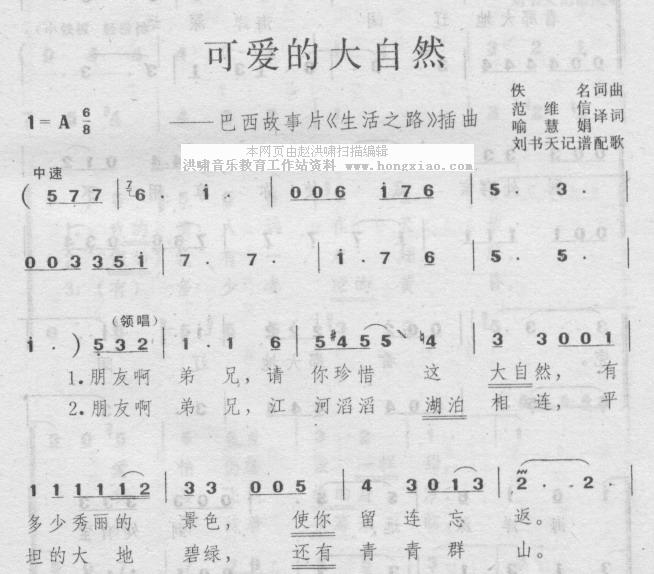 可爱的大自然
佚 名词曲
范 维 信
喻 慧 娟 译词
刘书天记谱配歌
1=A 6/8
——巴西故事片《生活之路》插曲
本网页由赵洪啸扫描编辑
洪啸音乐教育工作站资料 www.hongxiao.com
中速
( 5 7 7 | 6 · i · | 0 0 6 i 7 6 | 5 · 3 · |
0 0 3 3 5 i | 7 · 7 · | i · 7 6 | 5 · 5 · |
(领唱)
i · ) 5 3 2 | 1 · 1 6 | 5 #4 5 5 ♮4 | 3 3 0 0 1 |
1.朋友啊 弟 兄,请 你珍惜 这 大自然,有
2.朋友啊 弟 兄,江 河滔滔 湖泊 相连,平
1 1 1 1 1 2 | 3 3 0 0 5 | 4 · 3 0 1 3 | 2 · 2 · |
多少秀丽的 景色, 使你 留 连 忘 返。
坦的大 地 碧绿, 还有 青 青 群 山。